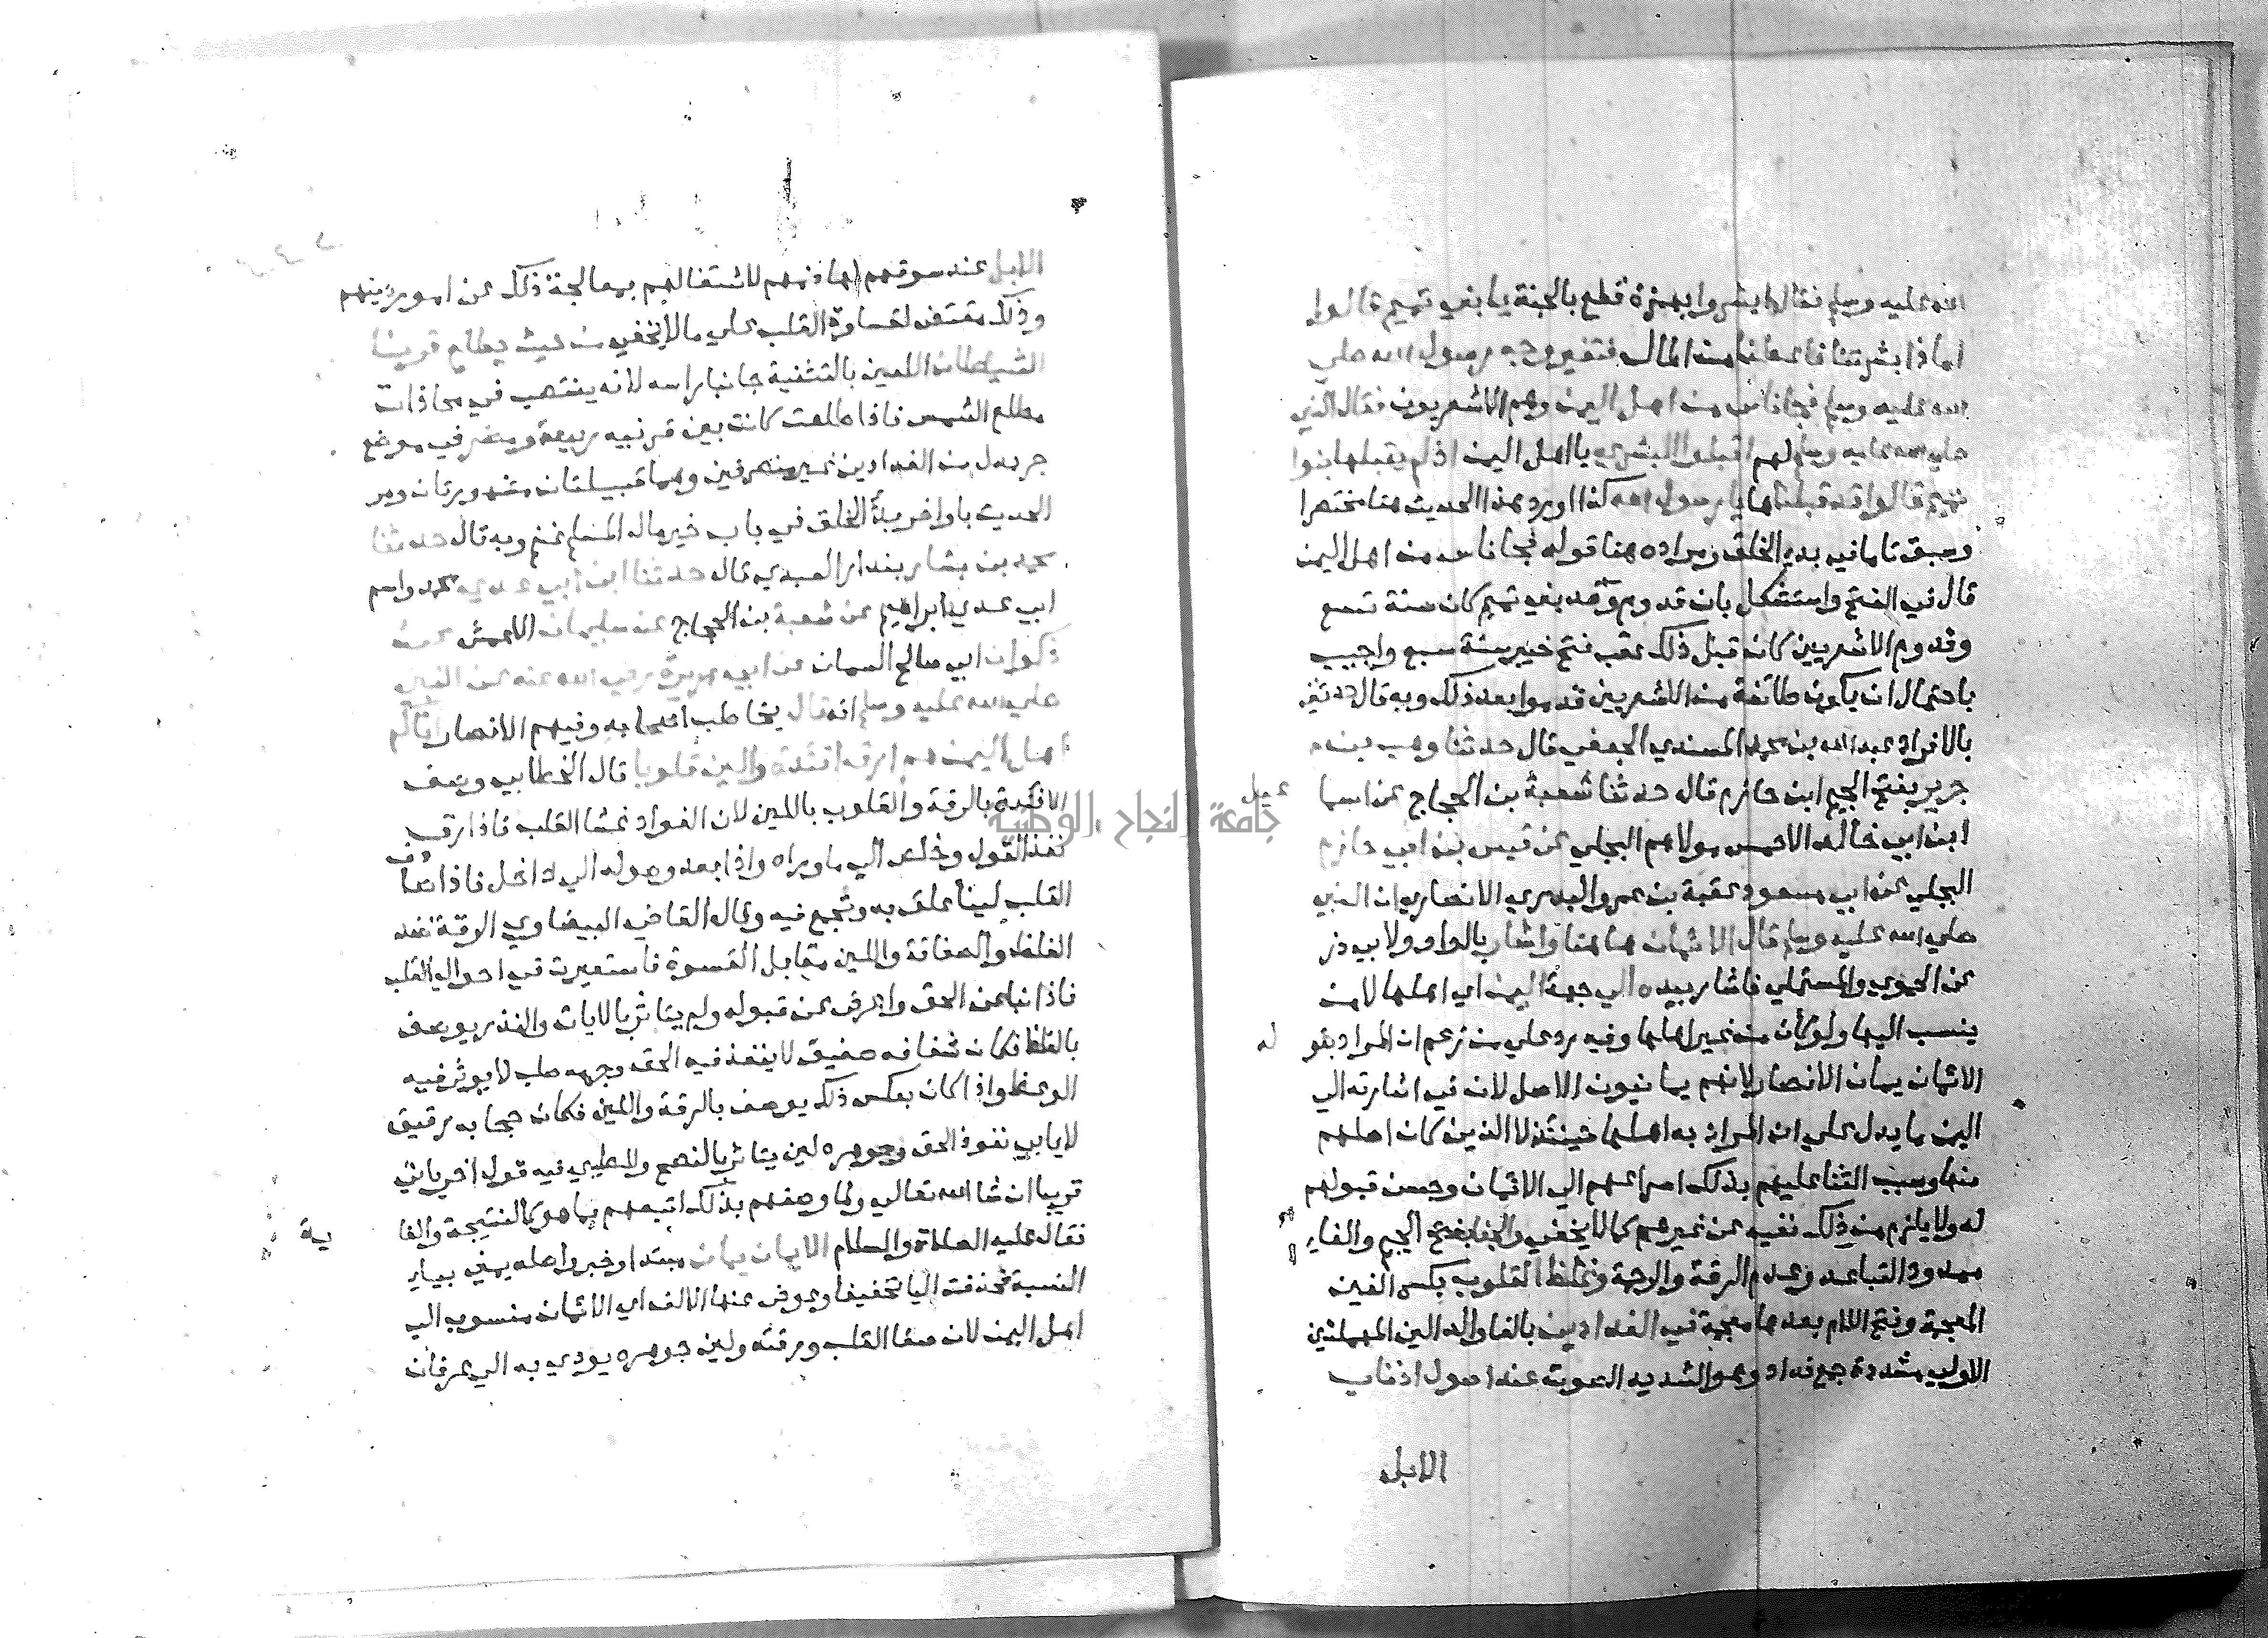 الله عليه وسلم فقال ابشروا بهمزة قطع بالجنة يا بني تميم قالوا
اما اذا بشرتنا فاعطنا من المال فتغير وجه رسول الله صلي
الله عليه وسلم فجا ناس من اهل اليمن وهم الاشعريون فقال النبي
صلي الله عليه وسلم لهم اقبلوا البشري يا اهل اليمن اذ لم يقبلها بنوا
تميم قالوا قد قبلناها يا رسول الله كذا اورد هذا الحديث هنا مختصرا
وسبق تاما في بدء الخلق ومراده هنا قوله فجا ناس من اهل اليمن
قال في الفتح واستشكل بان قدوم وفد بني تميم كان سنة تسع
وقدوم الاشعريين كان قبل ذلك عقب فتح خيبر سنة سبع واجيب
باحتمال ان يكون طائفة من الاشعريين قدموا بعد ذلك وبه قال حدثني
بالافراد عبد الله بن محمد المسندي الجعفي قال حدثنا وهب بن
جرير بفتح الجيم ابن حازم قال حدثنا شعبة بن الحجاج عن اسما عيل
ابن ابي خالد الاحمس مولاهم البجلي عن قيس بن ابي حازم
البجلي عن ابي مسعود عقبة بن عمرو البدري الانصاري ان النبي
صلي الله عليه وسلم قال الائمان هاهنا واشار بالواو ولابي ذر
عن الحموي والمستملي فاشار بيده الي جهة اليمن اي اهلها لا من
ينسب اليها ولو كان من غير اهلها وفيه رد علي من زعم ان المراد بقو له
الائمان يمان الانصار لانهم يمانيون الاصل لان في اشارته الي
اليمن ما يدل علي ان المراد به اهلها حينئذ لا الذين كان اصلهم
منها وسبب الثنا عليهم بذلك اسراعهم الي الائمان وحسن قبولهم
له ولا يلزم من ذلك نفيه عن غيرهم كما لا يخفي والجفا بفتح الجيم والفاء
ممدود التباعد وعدم الرقة والرحمة وغلظ القلوب بكسر الغين
المعجمة وفتح اللام بعدها معجمة في الفدادين بالفا والدالين المهملتين
الاولي مشددة جمع فداد وهو الشديد الصوت عند اصول اذناب
الابل
الابل عند سوقهم لها ذمهم لاشتغالهم بمعالجة ذلك عن امور دينهم
وذلك مقتضن لقساوة القلب علي ما لا يخفي من حيث يطلع قرينا
الشيطان اللعين بالتثنية جانبا راسه لانه ينتصب في محاذات
مطلع الشمس فاذا طلعت كانت بين قرنيه ربيعة ومضر في موضع
جر بدل من الفدادين غير منصرفين وهما قبيلتان مشهورتان ومر
الحديث باواخر بدأ الخلق في باب خير مال المسلم غنم وبه قال حدثنا
محمد بن بشار بندار العبدي قال حدثنا ابن ابي عدي محمد واسم
ابي عدي ابراهيم عن شعبة بن الحجاج عن سليمان الاعمش عن
ذكوان ابي صالح السمان عن ابي هريرة رضي الله عنه عن النبي
صلي الله عليه وسلم انه قال يخاطب اصحابه وفيهم الانصار اتاكم
اهل اليمن هم ارق افئدة والين قلوبا قال الخطابي وصف
الافئدة بالرقة والقلوب باللين لان الفواد غشا القلب فاذا رق
نفذ القول وخلص الي ما وراه واذا بعد وصوله الي داخل فاذا صادف
القلب لينا علق به وتجمع فيه وقال القاضي البيضاوي الرقة ضد
الغلظ والصفاقة واللين مقابل القسوة فاستعيرت في احوال القلب
فاذا نبا عن الحق واعرض عن قبوله ولم يتاثر بالايات والنذر يوصف
بالغلظ فكان شغافه صفيق لا ينفذ فيه الحق وجهه صلب لا يوثر فيه
الوعظ واذا كان بعكس ذلك يوصف بالرقة واللين فكان حجابه رقيق
لا يابي نفوذ الحق وجوهره لين يتاثر بالنصح وللطيبي فيه قول اخر ياتي
قريبا ان شا الله تعالي ولما وصفهم بذلك اتبعهم بما هو كالنتيجة والغا ية
فقال عليه الصلاة والسلام الايمان يمان مبتدا وخبر واصله يمني بياء
النسبة فحذفت اليا تخفيفا وعوض عنها الالف اي الائمان منسوب الي
اهل اليمن لان صفا القلب ورقته ولين جوهره يودي به الي عرفان